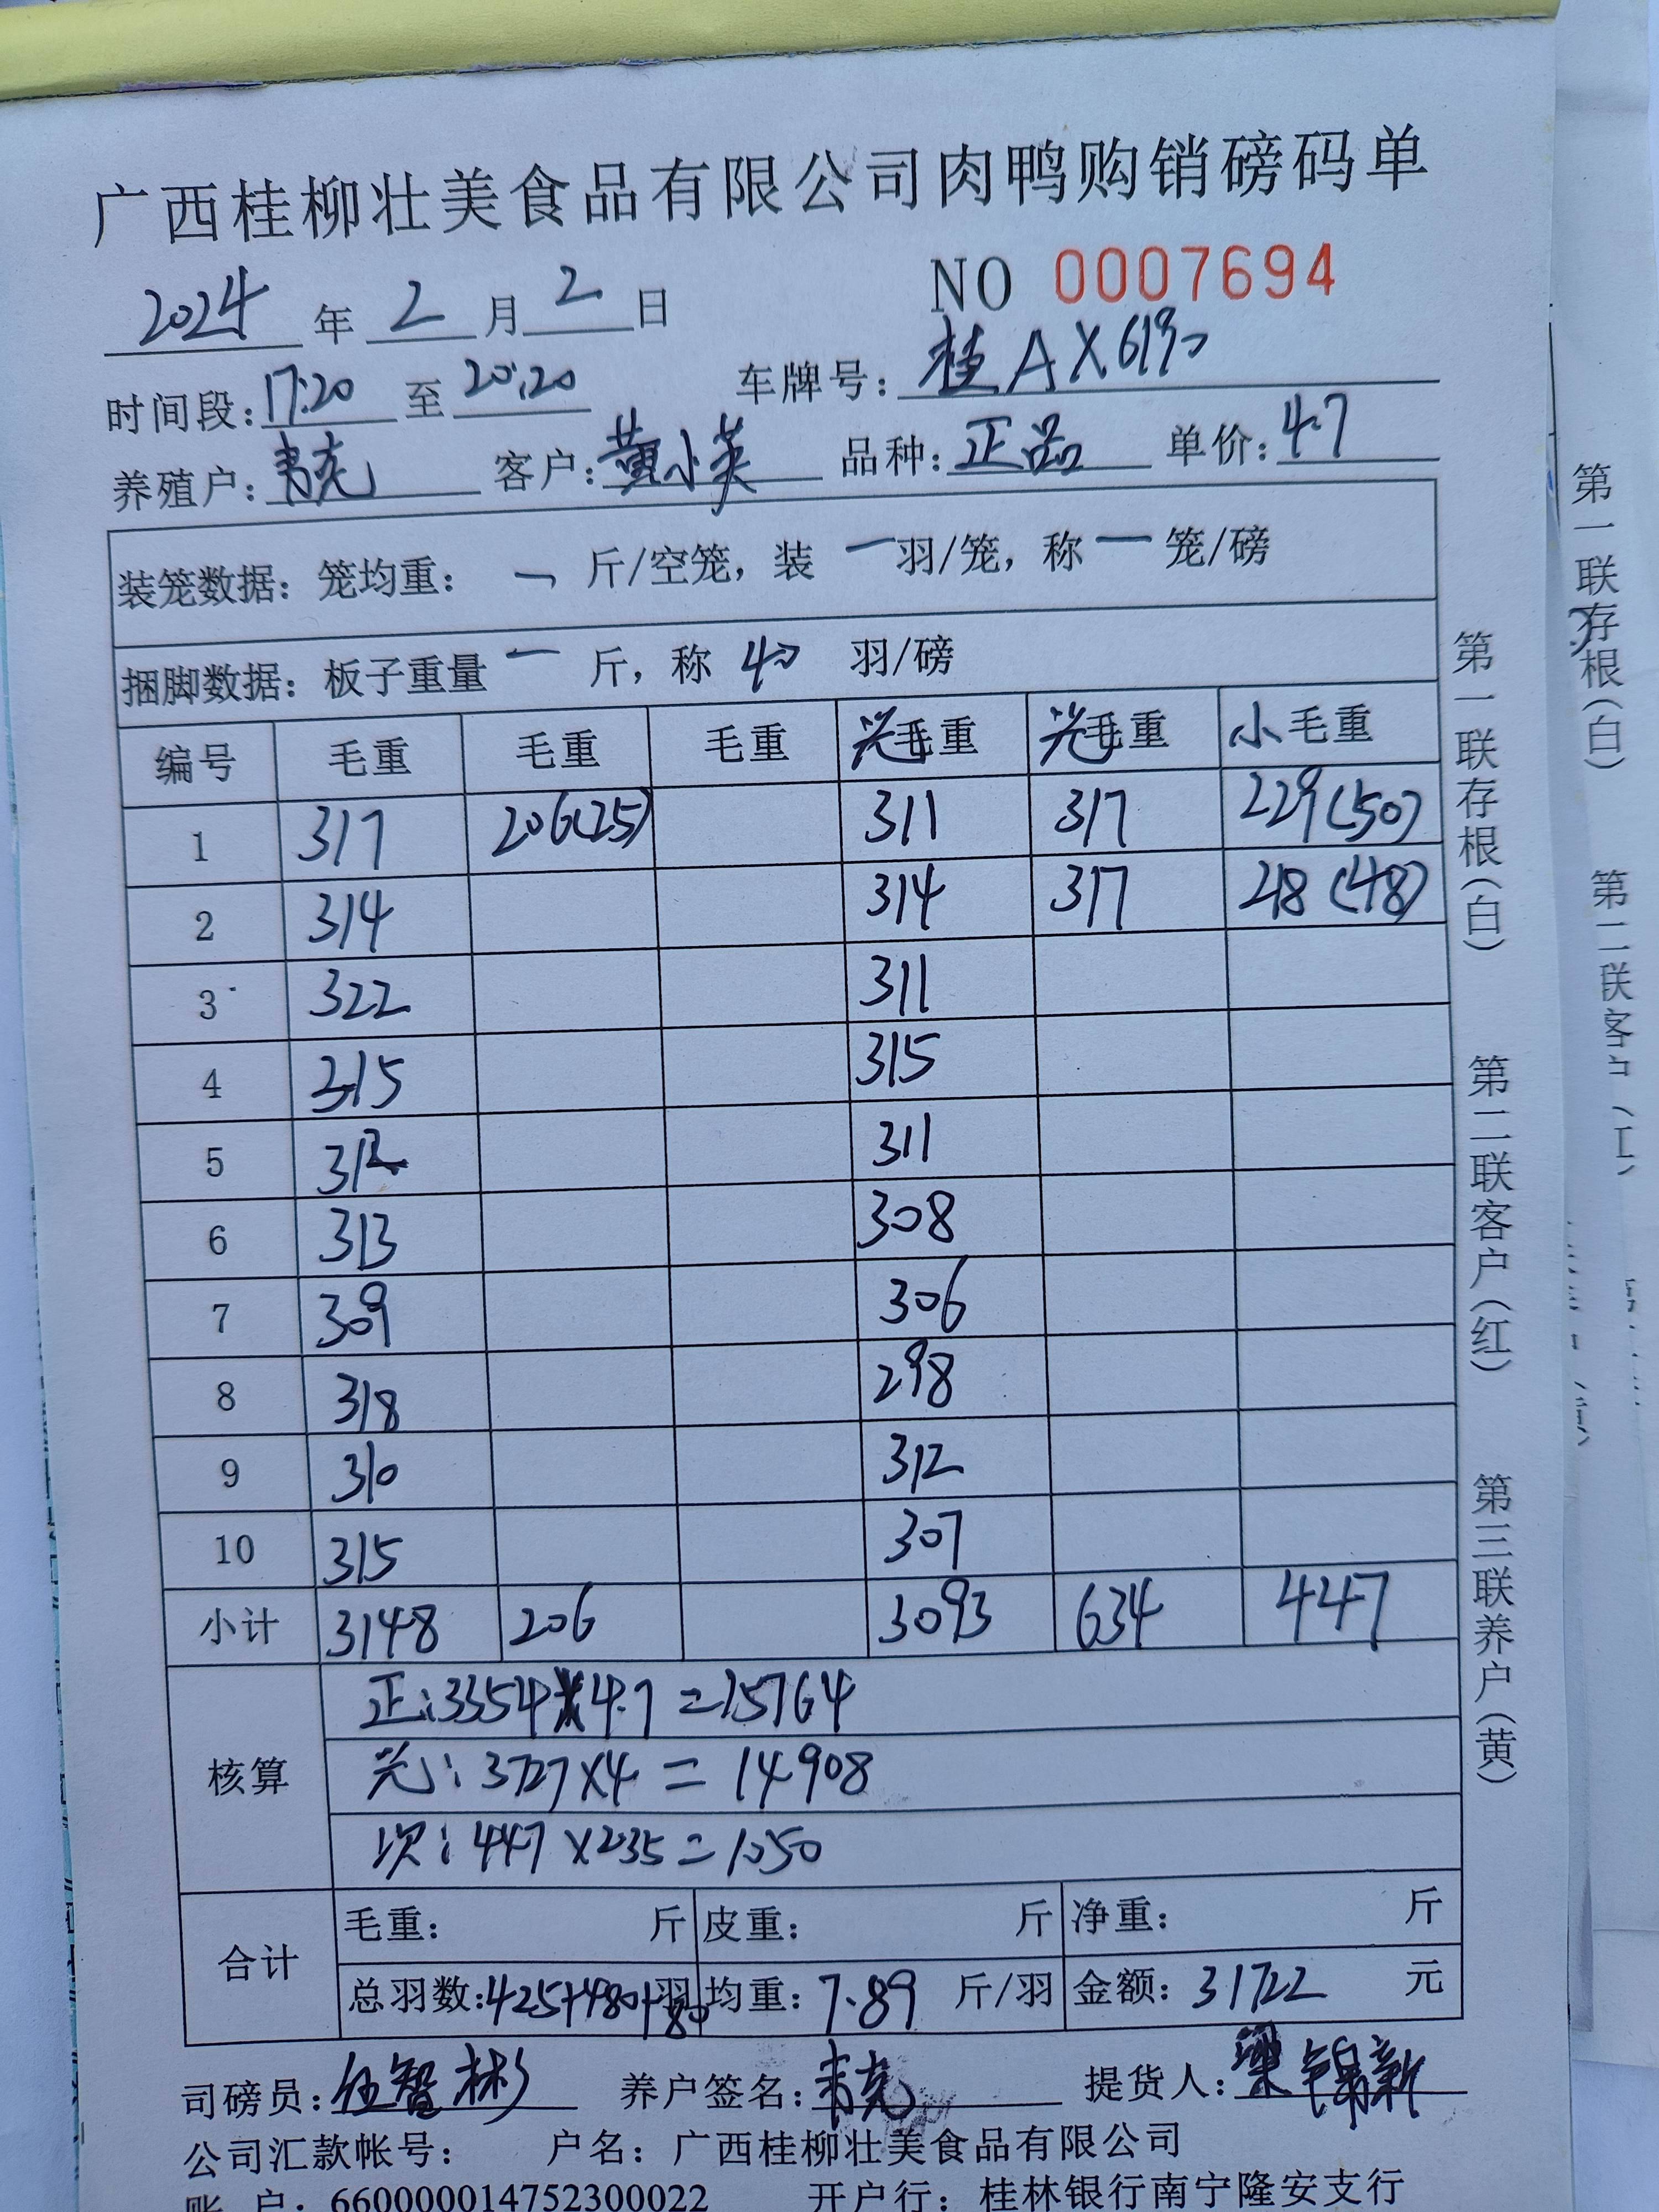 广西桂柳壮美食品有限公司肉鸭购销磅码单
NO 0007694
2024年2月2日
时间段:17:20至20:20 车牌号:桂AX6190
养殖户:韦克 客户:黄小英 品种:正品 单价:4.7
装笼数据:笼均重: 斤/空笼,装一羽/笼,称一笼/磅
捆脚数据:板子重量一斤,称40羽/磅
编号 毛重 毛重 毛重 光毛重 光毛重 小毛重
1 317 206(25) 311 317 229(50)
2 314 314 317 218(48)
3 322 311
4 315 315
5 311
6 313 308
7 309 306
8 318 298
9 310 312
10 315 307
小计 3148 206 3093 634 447
核算
正:3354×4.7=15764
光:3727×4=14908
次:447×2.35=1050
合计
毛重: 斤 皮重: 斤 净重: 斤
总羽数:425+480+80羽 均重:7.89斤/羽 金额:31722元
司磅员:伍智彬 养户签名:韦克 提货人:梁锦新
公司汇款帐号: 户名:广西桂柳壮美食品有限公司
账 户:660000014752300022 开户行:桂林银行南宁隆安支行
第一联存根(白) 第二联客户(红) 第三联养户(黄)
第一联存根(白)
第二联客户